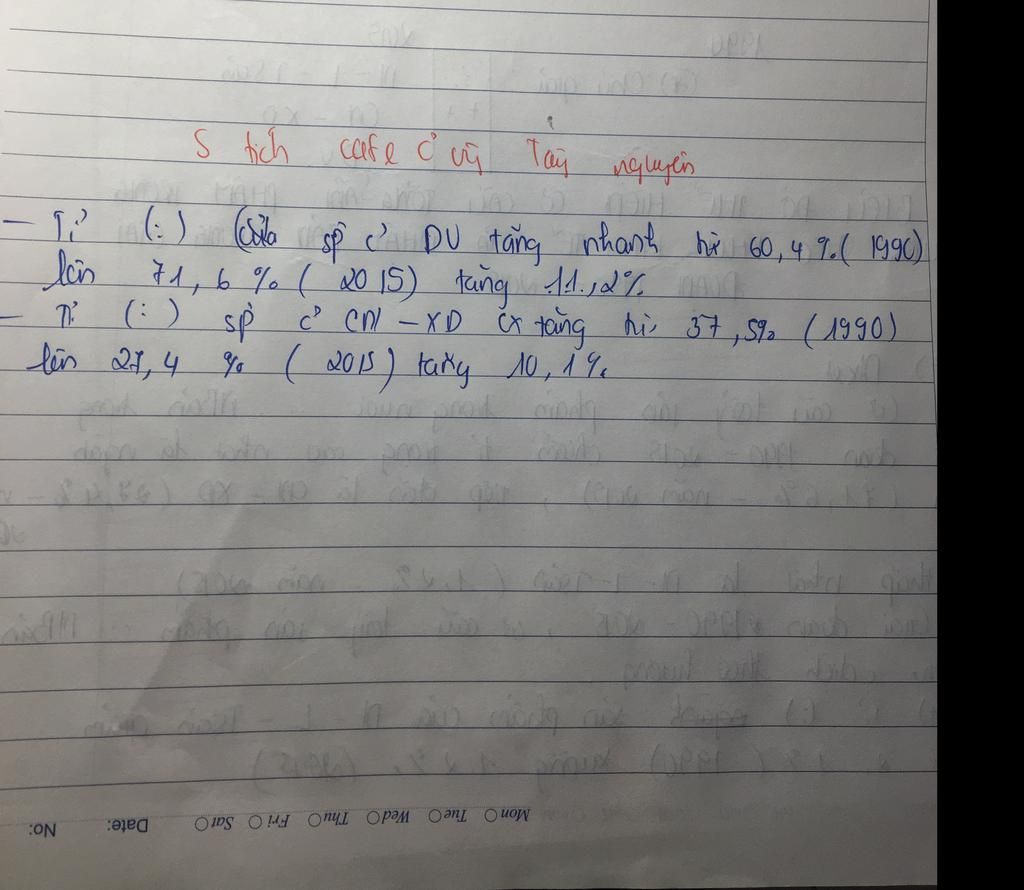 S tích cafe ở vù Tây nguyên
- Tỉ (:) của sp ở DV tăng nhanh từ 60,4%. (1990)
lên 71,6% (2015) tăng 11,2%
- Tỉ (:) sp ở CN - XD tăng từ 37,5% (1990)
lên 27,4 % (2015) tăng 10,1%.
Mon Tue Wed Thu Fri Sat
Date:
No: